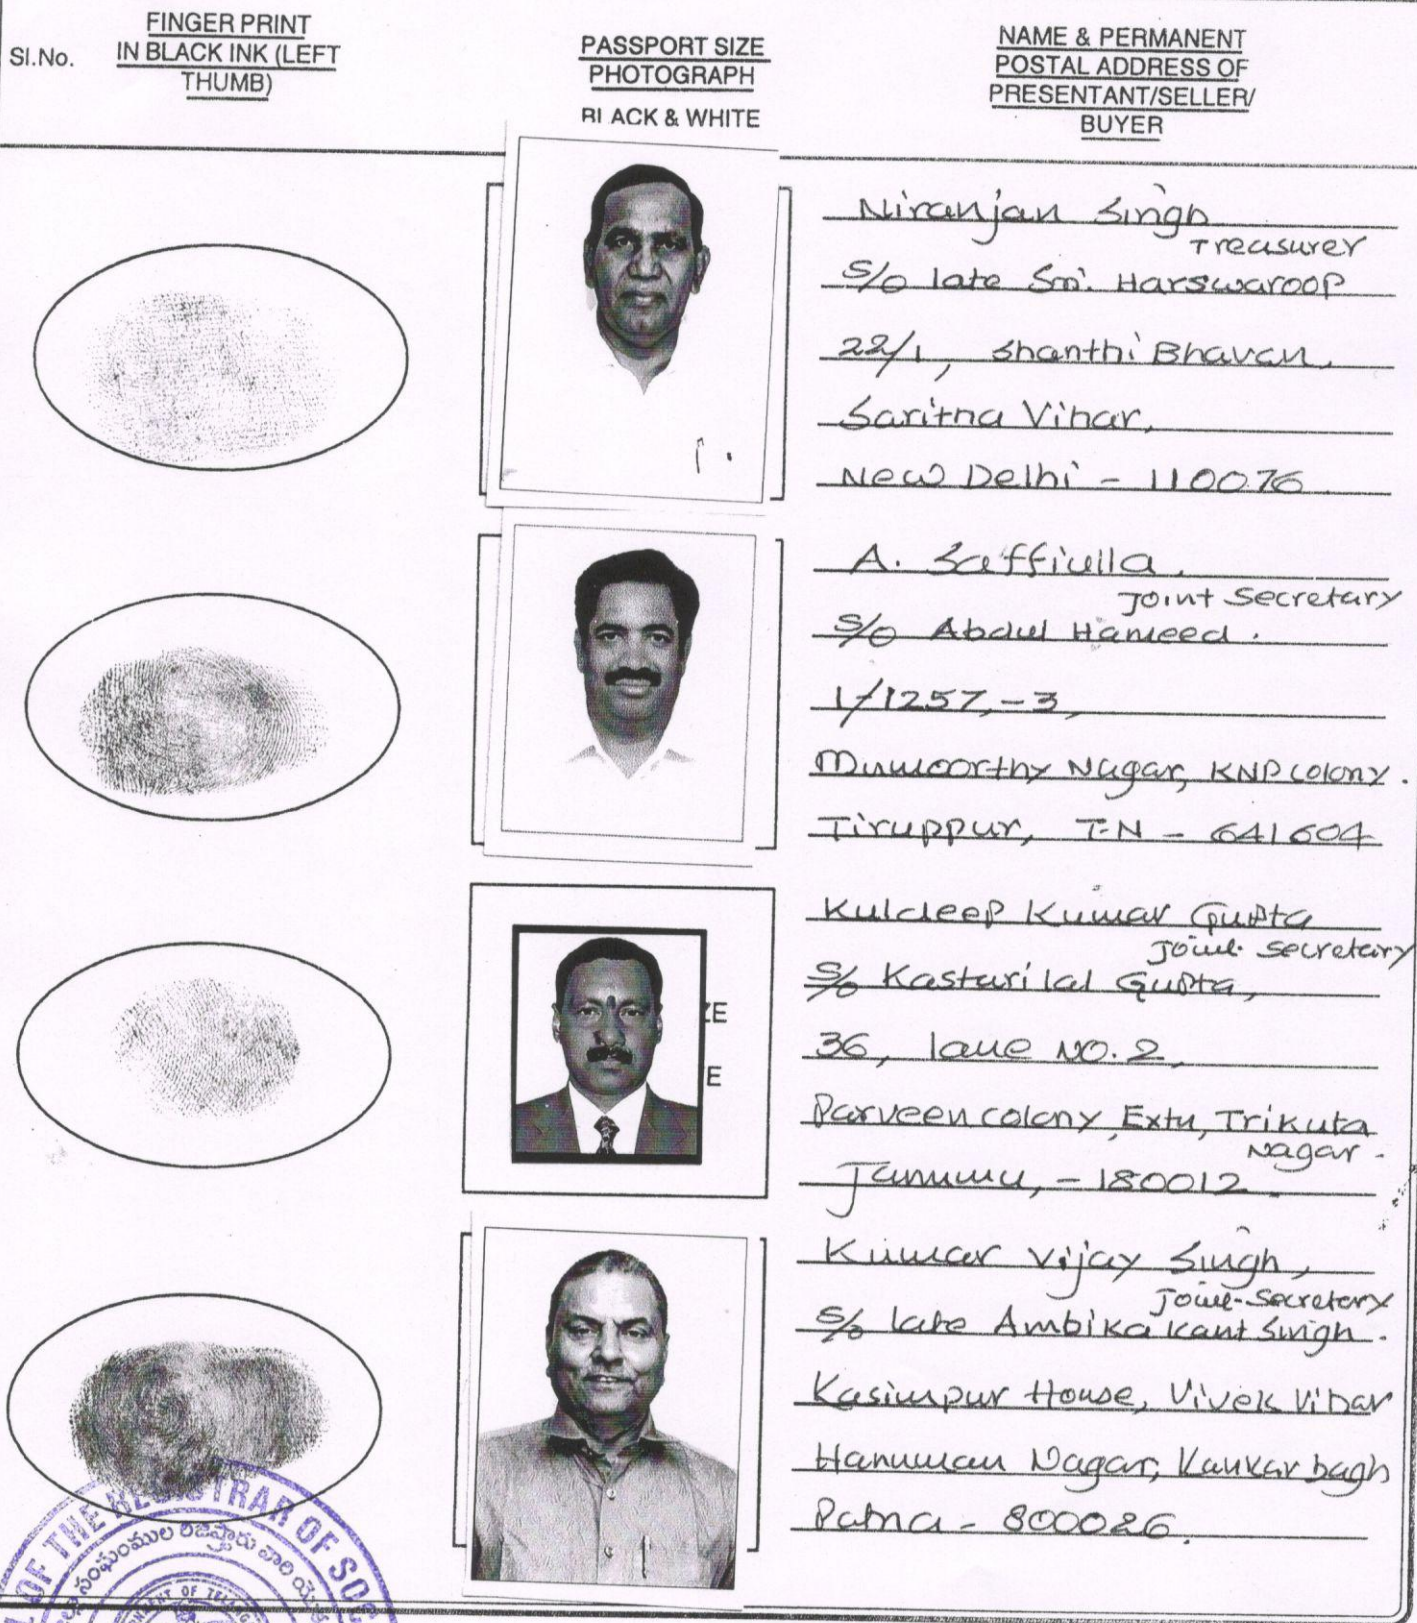 Sl.No.
FINGER PRINT
IN BLACK INK (LEFT
THUMB)
PASSPORT SIZE
PHOTOGRAPH
BLACK & WHITE
NAME & PERMANENT
POSTAL ADDRESS OF
PRESENTANT/SELLER/
BUYER
Niranjan Singh
Treasurer
S/o late Sri. Harswaroop
22/1, Shanthi Bhavan,
Saritha Vihar,
New Delhi - 110076
A. Saffiulla,
Joint Secretary
S/o Abdul Hameed.
1/1257,-3,
Mumoorthy Nagar, KNP colony.
Tiruppur, T.N - 641604
Kuldeep Kumar Gupta
Joint Secretary
S/o Kasturi lal Gupta,
ZE
36, lane NO. 2,
E
Parveen colony, Extn, Trikuta
Nagar.
Jammu, - 180012.
Kumar Vijay Singh,
Joint-Secretary
S/o late Ambika kant Singh.
Kasimpur House, Vivek Vihar
Hanuman Nagar, Kankarbagh
Patna - 800026.
OF THE REGISTRAR OF SOC
సంఘముల రిజిస్ట్రారు వారి